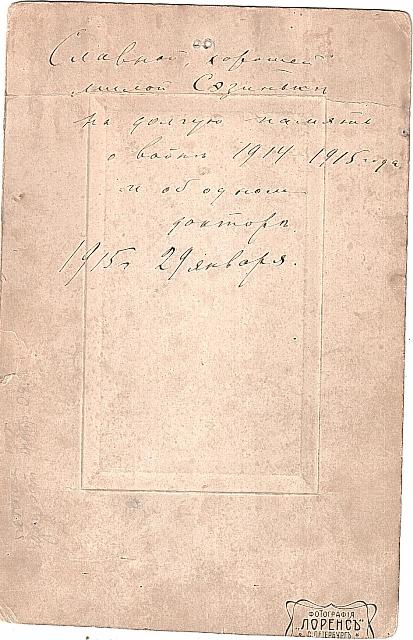 Славной, хорошей
милой
на долгую память
о войнѣ 1914-1915 года
и об одном
докторѣ.
1915 г 29 января.
ФОТОГРАФІЯ
"ЛОРЕНСЪ"
С. ПЕТЕРБУРГЪ